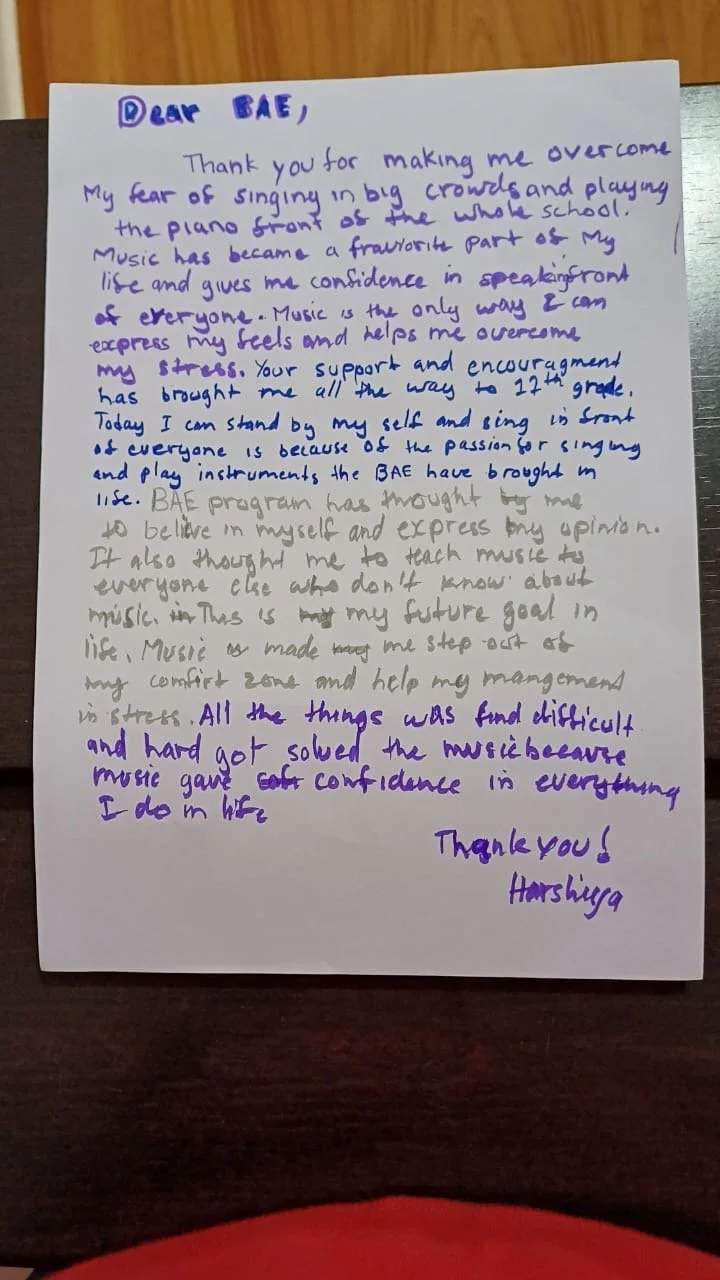 Dear BAE,
Thank you for making me overcome
My fear of singing in big crowds and playing
the piano front of the whole school.
Music has became a fraviorite part of My
life and gives me confidence in speaking front
of everyone. Music is the only way I can
express my feels and helps me overcome
my stress. Your support and encouragment
has brought me all the way to 12th grade.
Today I can stand by my self and sing in front
of everyone is because of the passion for singing
and play instruments the BAE have brought in
life. BAE program has thought by me
to believe in myself and express my opinion.
It also thought me to teach music to
everyone else who don't know about
music. in This is my my future goal in
life. Music is made my me step out of
my comfirt zone and help my mangemend
in stress. All the things was find difficult
and hard got solved the music because
music gave confidence in everything
I do in life
Thank you!